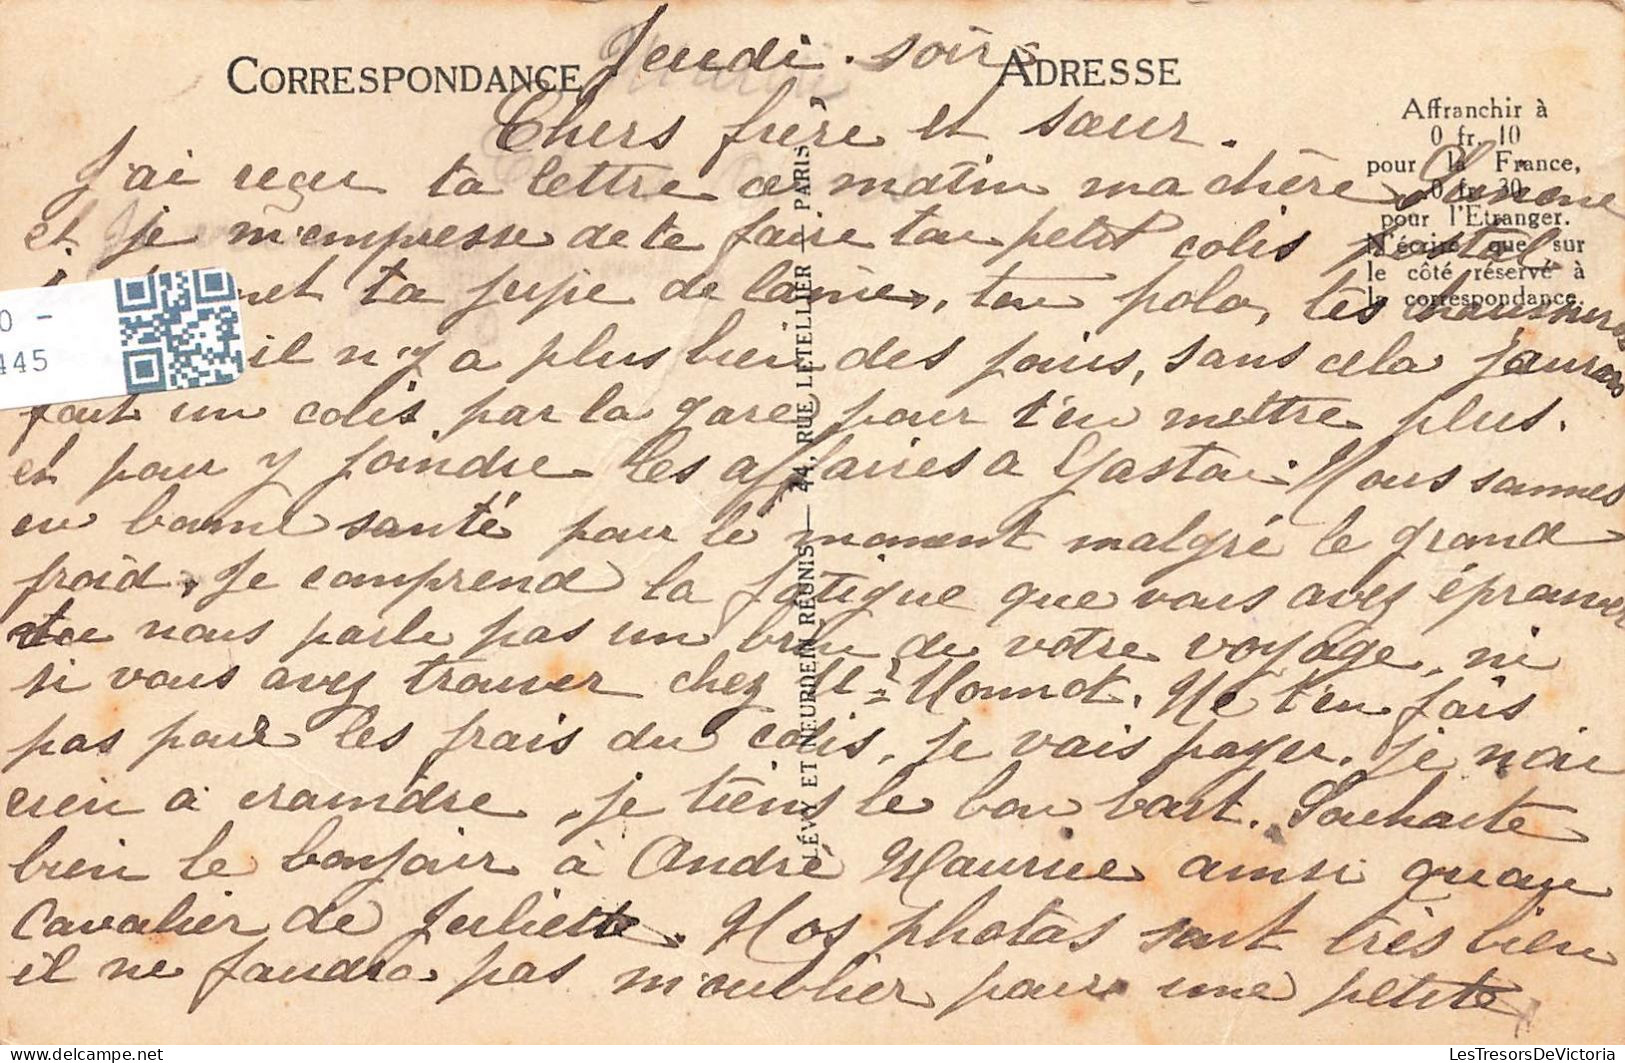 CORRESPONDANCE
ADRESSE
Jeudi. soir
Chers frère et sœur.
J'ai reçu ta lettre ce matin ma chère
et je m'empresse de te faire ton petit colis postal
ta jupe de laine, ton polo, tes
il n'y a plus bien des jours, sans cela j'aurais
fait un colis par la gare pour t'en mettre plus.
et pour y joindre les affaires a Gaston. Nous sommes
en bonne santé pour le moment malgré le grand
froid. Je comprend la fatigue que vous avez éprouver
tu nous parle pas un brin de votre voyage, ni
si vous avez trouver chez Mr Monnot. Ne t'en fais
pas pour les frais du colis, je vais payer. je n'ai
rien à craindre, je tiens le bon bout. Souhaite
bien le bonjour à André Maurice ainsi qu'au
Cavalier de Juliette. Nos photos sont très bien
il ne faudra pas m'oublier pour une petite
Affranchir à
0 fr. 10
pour la France,
0 fr. 30
pour l'Etranger.
N'écrire que sur
le côté réservé à
la correspondance.
LÉVY ET NEURDEIN RÉUNIS — 44, RUE LETELLIER — PARIS
0 -
445
LesTresorsDeVictoria @ delcampe.net